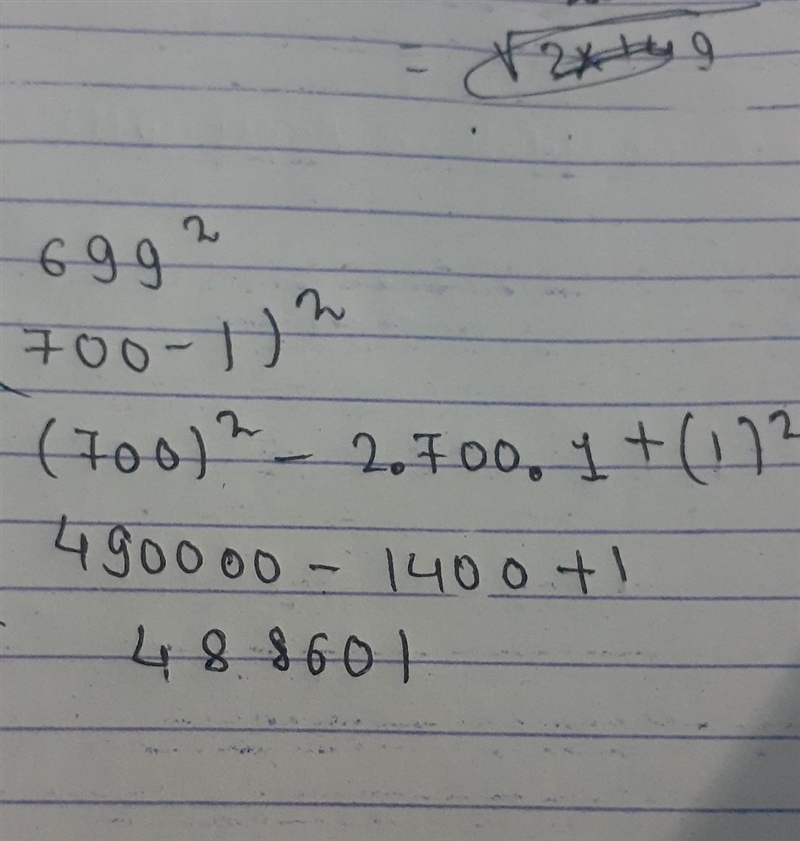 = √2x+49
699²
700-1)²
(700)² - 2.700.1+(1)²
490000 - 1400+1
488601